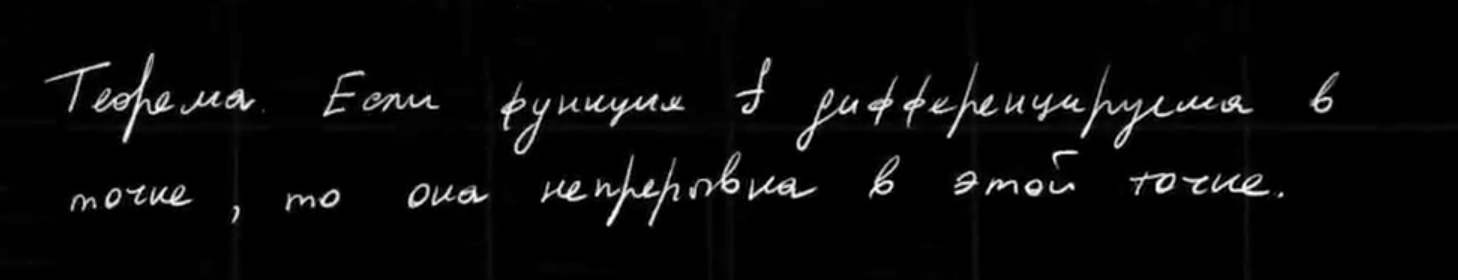 Теорема. Если функция f дифференцируема в
точке, то она непрерывна в этой точке.